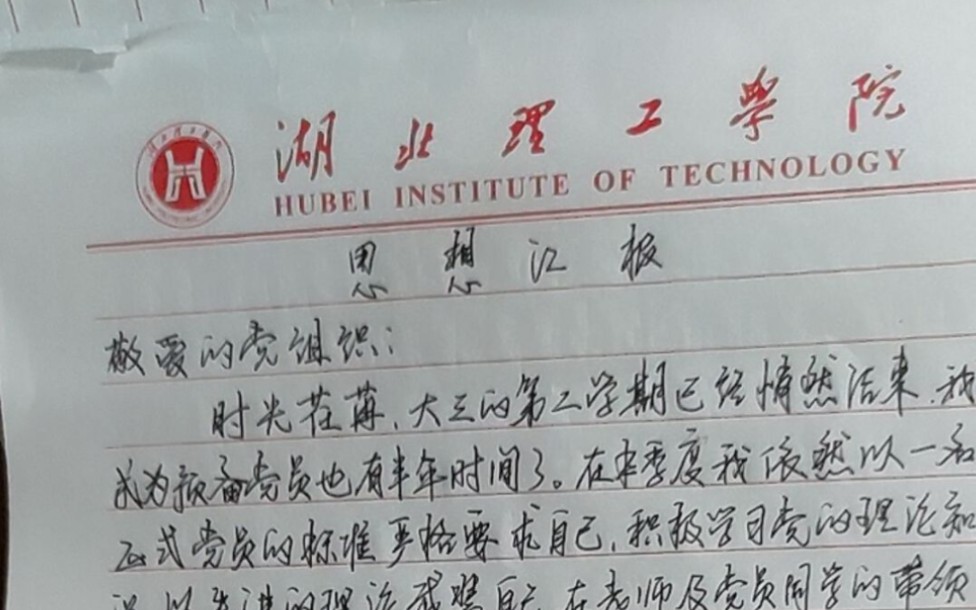 湖北理工学院
HUBEI INSTITUTE OF TECHNOLOGY
思想汇报
敬爱的党组织：
时光荏苒、大三的第二学期已经悄然结束，我
成为预备党员也有半年时间了。在本季度我依然以一名
正式党员的标准严格要求自己，积极学习党的理论知
识，以先进的理论武装自己，在老师及党员同学的带领